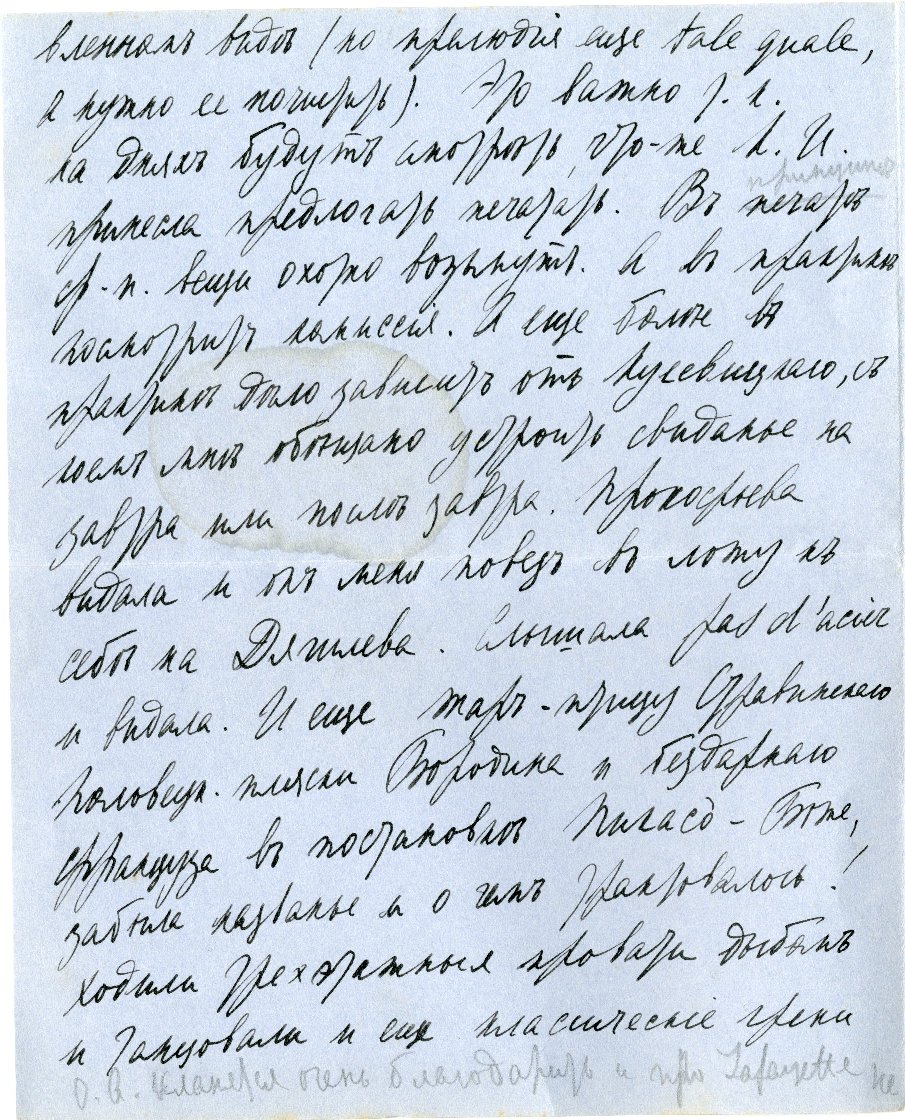 вленномъ видѣ (но прелюдія еще tale quale,
а нужно ее почистить). Это важно т. к.
на дняхъ будутъ смотрѣть, что-же А. И.
принципѣ
принесла предлогать печатать. Въ печать
ф.-п. вещи охотно возьмутъ. А въ принципѣ
посмотритъ комиссія. И еще болѣе въ
принципѣ дѣло зависитъ отъ Кусевицкаго, съ
коемъ мнѣ обѣщано устроить свиданье на
завтра или послѣ завтра. Прокофьева
видала и онъ меня поведъ въ ложу къ
себѣ на Дягилева. Слышала pas d'acier
и видала. И еще жаръ-птицу Стравинскаго
Половецк. пляски Бородина и бездарнаго
француза въ постановкѣ Пикассо – Боже,
забыла названье и о чемъ трактовалось!
Ходили трехэтажныя кровати дыбомъ
и танцовали и еще классическіе греки
О. А. кланется очень благодарить и про Lafayette не